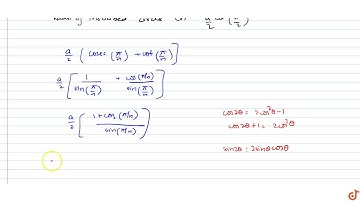 a/2 cot(π/n)
a/2 { cosec(π/n) + cot(π/n) }
a/2 [ 1/sin(π/n) + cos(π/n)/sin(π/n) ]
a/2 [ 1+cos(π/n) / sin(π/n) ]
cos2θ = 2cos²θ-1
cos2θ+1 = 2cos²θ
sin2θ = 2sinθcosθ